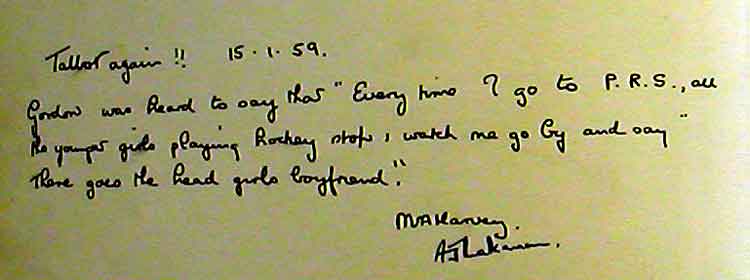 Talbot again !! 15.1.59.
Gordon was heard to say that "Every time I go to P.R.S., all
the younger girls playing hockey stop, watch me go by and say "
There goes the head girls boyfriend".
MAHarvey.